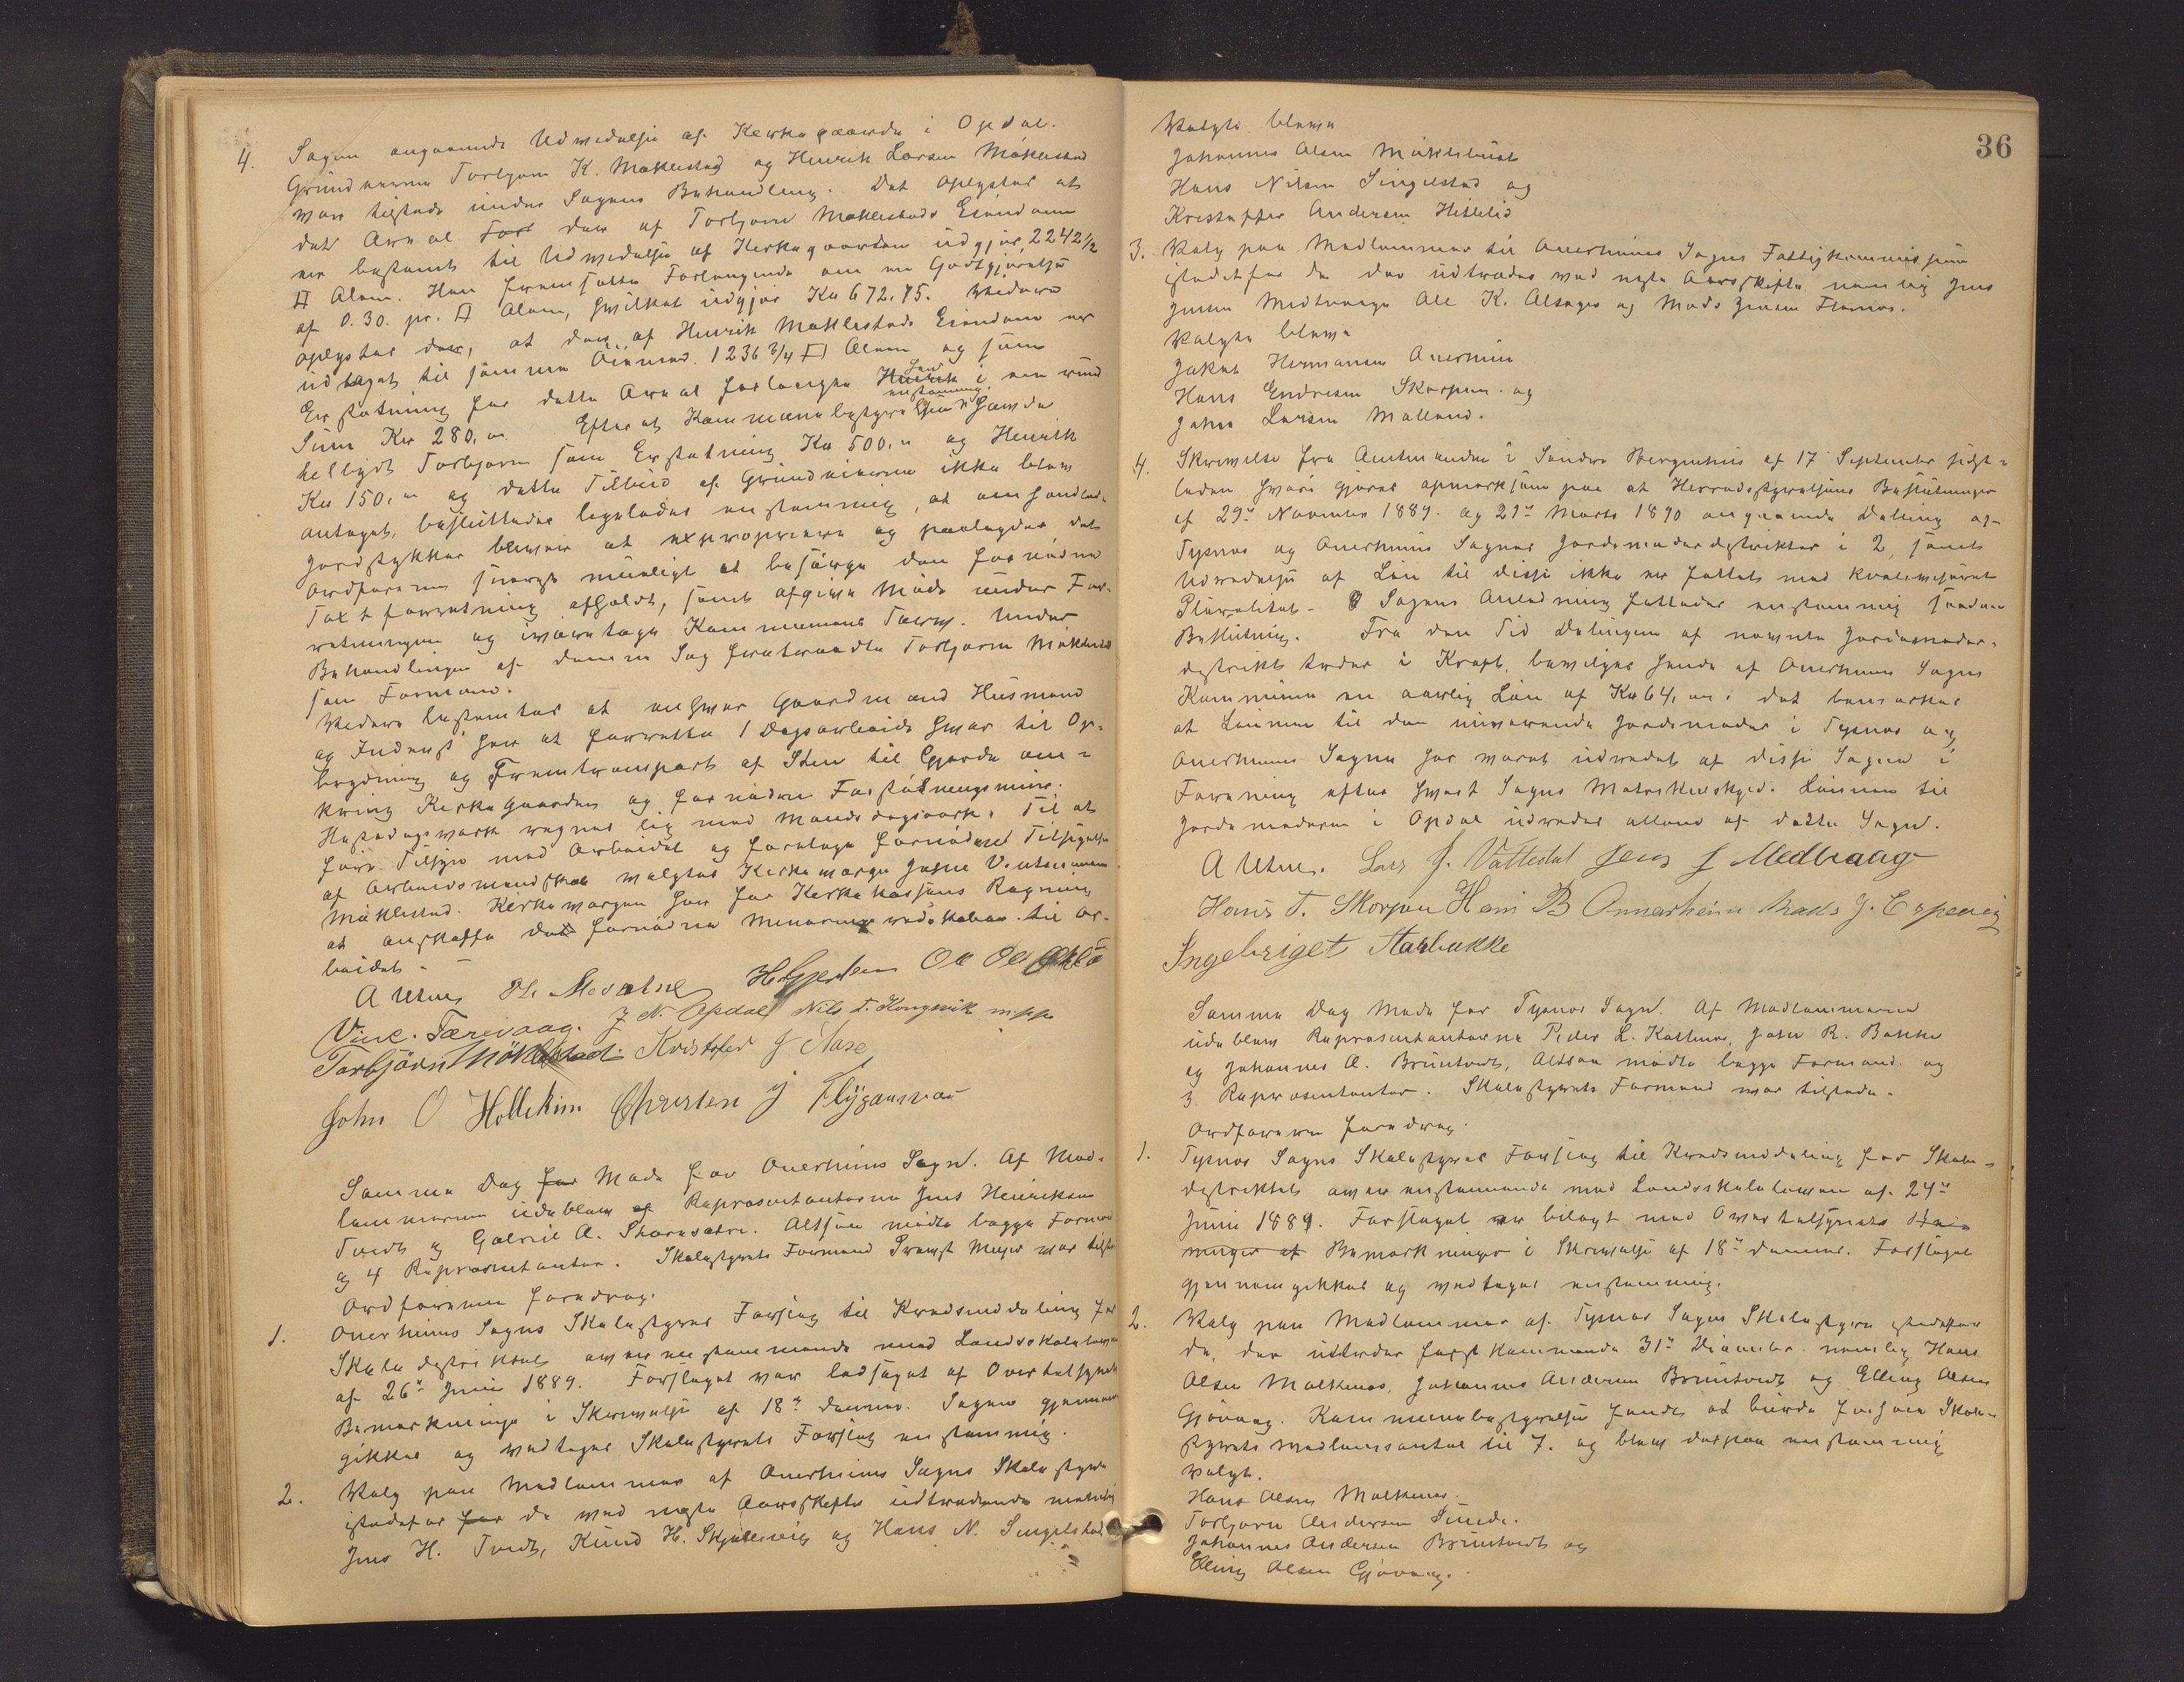 4. Sagen angaaende Udvidelse af Kirkegaarde i Opdal.
Grundeierne Torbjørn K. Møklestad og Henrik Larsen Møklestad
var tilstede under Sagens Behandling. Det oplystes at
det Areal som der af Torbjørn Møklestads Eiendom
er bestemt til Udvidelse af Kirkegaarden udgjør 2242 1/2
□ Alen. Han fremsatte Forlangende om en Godtgjørelse
af 0.30. pr. □ Alen, hvilket udgjør Kr 672.75. Videre
oplystes der, at der af Henrik Møklestads Eiendom er
udtaget til samme Øiemed 1236 3/4 □ Alen og som
Erstatning for dette Areal forlangte han i en rund
Sum Kr 280,00. Efterat Kommunebestyrelsen enstemmig havde
tilbudt Torbjørn som Erstatning Kr 500,00 og Henrik
Kr 150,00 og dette Tilbud af Grundeierne ikke blev
antaget, besluttedes ligeledes enstemmig, at omhandlede
Jordstykker bliver at expropriere og paalagdes det
Ordføreren snarest muligt at besørge den fornødne
Taxtforretning afholdt, samt afgive Møde under For-
retningen og ivaretage Kommunens Tarv. Under
Behandlingen af denne Sag fratraadte Torbjørn Møklestad
som Formand.
Videre bestemtes at enhver Gaardmand Husmand
og Inderst har at forrette 1 Dagsarbeide hver til Op-
brydning og Fremtransport af Sten til Gjerde om-
kring Kirkegaarden og fornøden Forstøtningsmur.
Hestedagsværk regnes lig med Mandsdagsværk. Til at
føre Tilsyn med Arbeidet og foretage fornøden Tilsigelse
af Arbeidsmandskab valgtes Kirkeværge Johs Vintermann
Møklestad. Kirkeværgen har for Kirkekassens Regning
at anskaffe det fornødne Mineringsredskaber til Ar-
beidet.
A Utne, Ole Mevatne H Gjerstein Ole Ols Økland
Vinc. Færevaag. J N. Opdal Nils T. Kongsvik m.p.p
Torbjørn Møklestad Kristofer J Aase
John O Hollekim Christen J Flygansvær
Samme Dag for Møde for Onerheims Sogn. Af Med-
lemmerne udeblev af Repræsentanterne Jens Henriksen
Tvedt og Gabriel A. Skorsæter. Altsaa mødte begge Formænd
og 4 Repræsentanter. Skolestyrets Formand Provst Meyer var tilstede
Ordføreren foredrog.
1. Onerheims Sogns Skolestyres Forslag til Kredsinddeling for
Skoledistriktet overensstemmende med Landsskoleloven
af 26de Juni 1889. Forslaget var ledsaget af Overtilsynets
Bemærkninger i Skrivelse af 18de dennes. Sagen gjennem-
gikkes og vedtages Skolestyrets Forslag enstemmig.
2. Valg paa Medlemmer af Onerheims Sogns Skolestyre
istedetfor for de ved næste Aarsskifte udtrædende nemlig
Jens H. Tvedt, Knud H. Skjellevig og Hans N. Singelstad.
36
Valgte blev
Johannes Olsen Møklebust
Hans Nilsen Singelstad og
Kristoffer Andersen Hillelid
3. Valg paa Medlemmer til Onerheims Sogns Fattigkommission
istedetfor de der udtræder ved næste Aarsskifte nemlig Jens
Jensen Medvaage Ole K. Alsager og Mads Jensen Flornes.
Valgte blev
Jakob Hermansen Onerheim
Hans Endresen Skorpen og
Johs Larsen Malland.
4. Skrivelse fra Amtmanden i Søndre Bergenhus af 17 September sidst-
leden hvori gjøres opmærksom paa at Herredsstyrelsens Beslutninger
af 29de November 1889. og 21de Marts 1890 angaaende Deling af
Tysnes og Onerheims Sognes Jordemoderdistrikter i 2, samt
Udredelse af Løn til disse ikke er fattet med kvalificeret
Pluralitet. I Sagens Anledning fattedes enstemmig saadan
Beslutning. Fra den Tid Delingen af nævnte Jordemoder-
distrikt træder i Kraft, bevilges hende af Onerheims Sogns
Kommune en aarlig Løn af Kr 64,00. det bemærkes
at Lønnen til den nuværende Jordemoder i Tysnes og
Onerheims Sogne har været udredet af disse Sogne i
Forening efter hvert Sogns Matrikelskyld. Lønnen til
Jordemoderen i Opdal udredes allene af dette Sogn.
A Utne. Lars J. Vattedal Jens J Medvaag
Hans T. Skorpen Hans B Onnarheim Mads J. Espevig
Ingebrigt Aarbakke
Samme Dag Møde for Tysnes Sogn. Af Medlemmerne
udeblev Repræsentanterne Peder L. Kattnes, John R. Bakke
og Johannes A. Bruntveit, Altsaa mødte begge Formænd og
3 Repræsentanter. Skolestyrets Formand var tilstede.
Ordføreren foredrog.
1. Tysnes Sogns Skolestyres Forslag til Kredsinddeling for Skole-
distriktet overensstemmende med Landsskoleloven af 24de
Juni 1889. Forslaget er bilagt med Overtilsynets
Bemærkninger i Skrivelse af 18de dennes. Forslaget
gjennemgikkes og vedtages enstemmig.
2. Valg paa Medlemmer af Tysnes Sogns Skolestyre istedetfor
de, der udtræder førstkommende 31te December nemlig Hans
Olsen Malkenes, Johannes Andersen Bruntvedt og Elling Olsen
Gjøvaag. Kommunebestyrelsen fandt at burde forhøie Skole-
styrets Medlemsantal til 7. og blev derpaa enstemmig
valgt.
Hans Olsen Malkenes.
Torbjørn Andersen Sunde.
Johannes Andersen Bruntvedt og
Elling Olsen Gjøvaag.